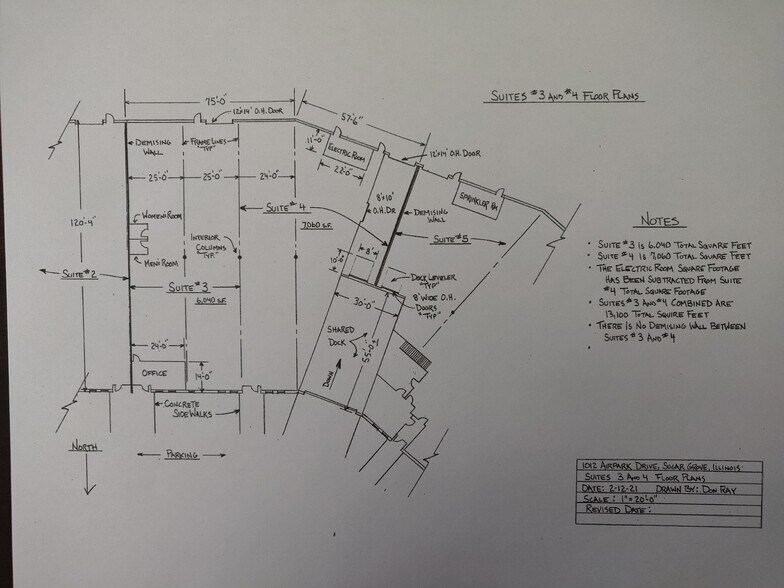 SUITES #3 AND #4 FLOOR PLANS
75'-0"
57'-6"
12'x14' O.H. DOOR
DEMISING
WALL
FRAME LINES
"TYP"
11'-0"
ELECTRIC ROOM
22'-0"
12'x14' O.H. DOOR
25'-0"
25'-0"
24'-0"
8'x10'
O.H. DR
SPRINKLER RM
120'-4"
WOMEN'S ROOM
SUITE #4
7,060 S.F.
DEMISING
WALL
SUITE #5
INTERIOR
COLUMNS
"TYP."
MEN'S ROOM
8'
10'-0"
SUITE #2
SUITE #3
6,040 S.F.
DOCK LEVELER
"TYP"
8' WIDE O.H.
DOORS
"TYP"
30'-0"
SHARED
DOCK
55'-0±
24'-0"
OFFICE
14'-0"
DOWN
CONCRETE
SIDE WALKS
NORTH
PARKING
NOTES
• SUITE #3 IS 6,040 TOTAL SQUARE FEET
• SUITE #4 IS 7,060 TOTAL SQUARE FEET
• THE ELECTRIC ROOM SQUARE FOOTAGE
HAS BEEN SUBTRACTED FROM SUITE
#4 TOTAL SQUARE FOOTAGE
• SUITES #3 AND #4 COMBINED ARE
13,100 TOTAL SQUIRE FEET
• THERE IS NO DEMISING WALL BETWEEN
SUITES #3 AND #4
•
1012 AIRPARK DRIVE, SUGAR GROVE, ILLINOIS
SUITES 3 AND 4 FLOOR PLANS
DATE: 2-12-21 DRAWN BY: DON RAY
SCALE: 1"=20'-0"
REVISED DATE: